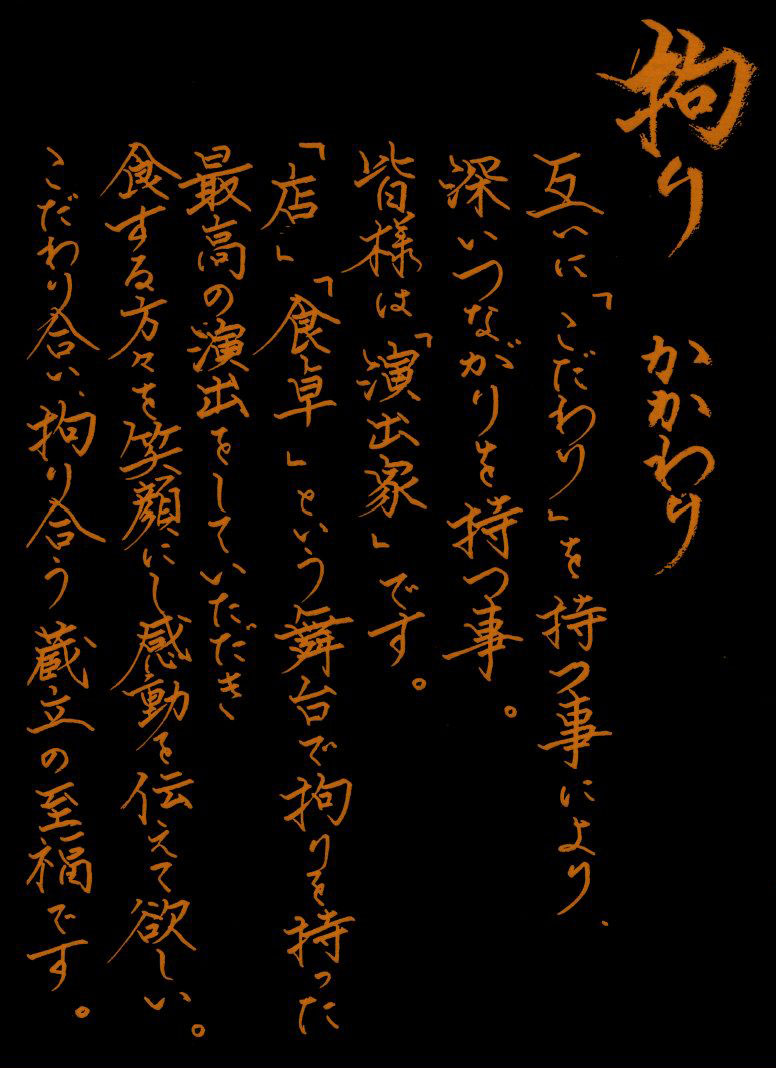 拘り　かかわり
互いに「こだわり」を持つ事により、
深いつながりを持つ事。
皆様は「演出家」です。
「店」「食卓」という舞台で拘りを持った
最高の演出をしていただき
食する方々を笑顔にし感動を伝えて欲しい。
こだわり合い、拘り合う蔵立の至福です。